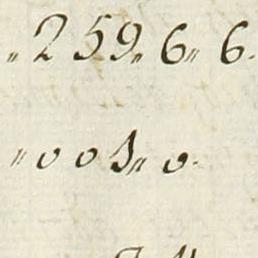 „ 2 5 9 „ 6 „ 6.
„ 0 0 1 „ 0.